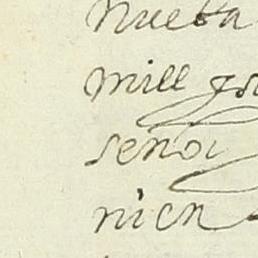 nueba
mill
señor
nien